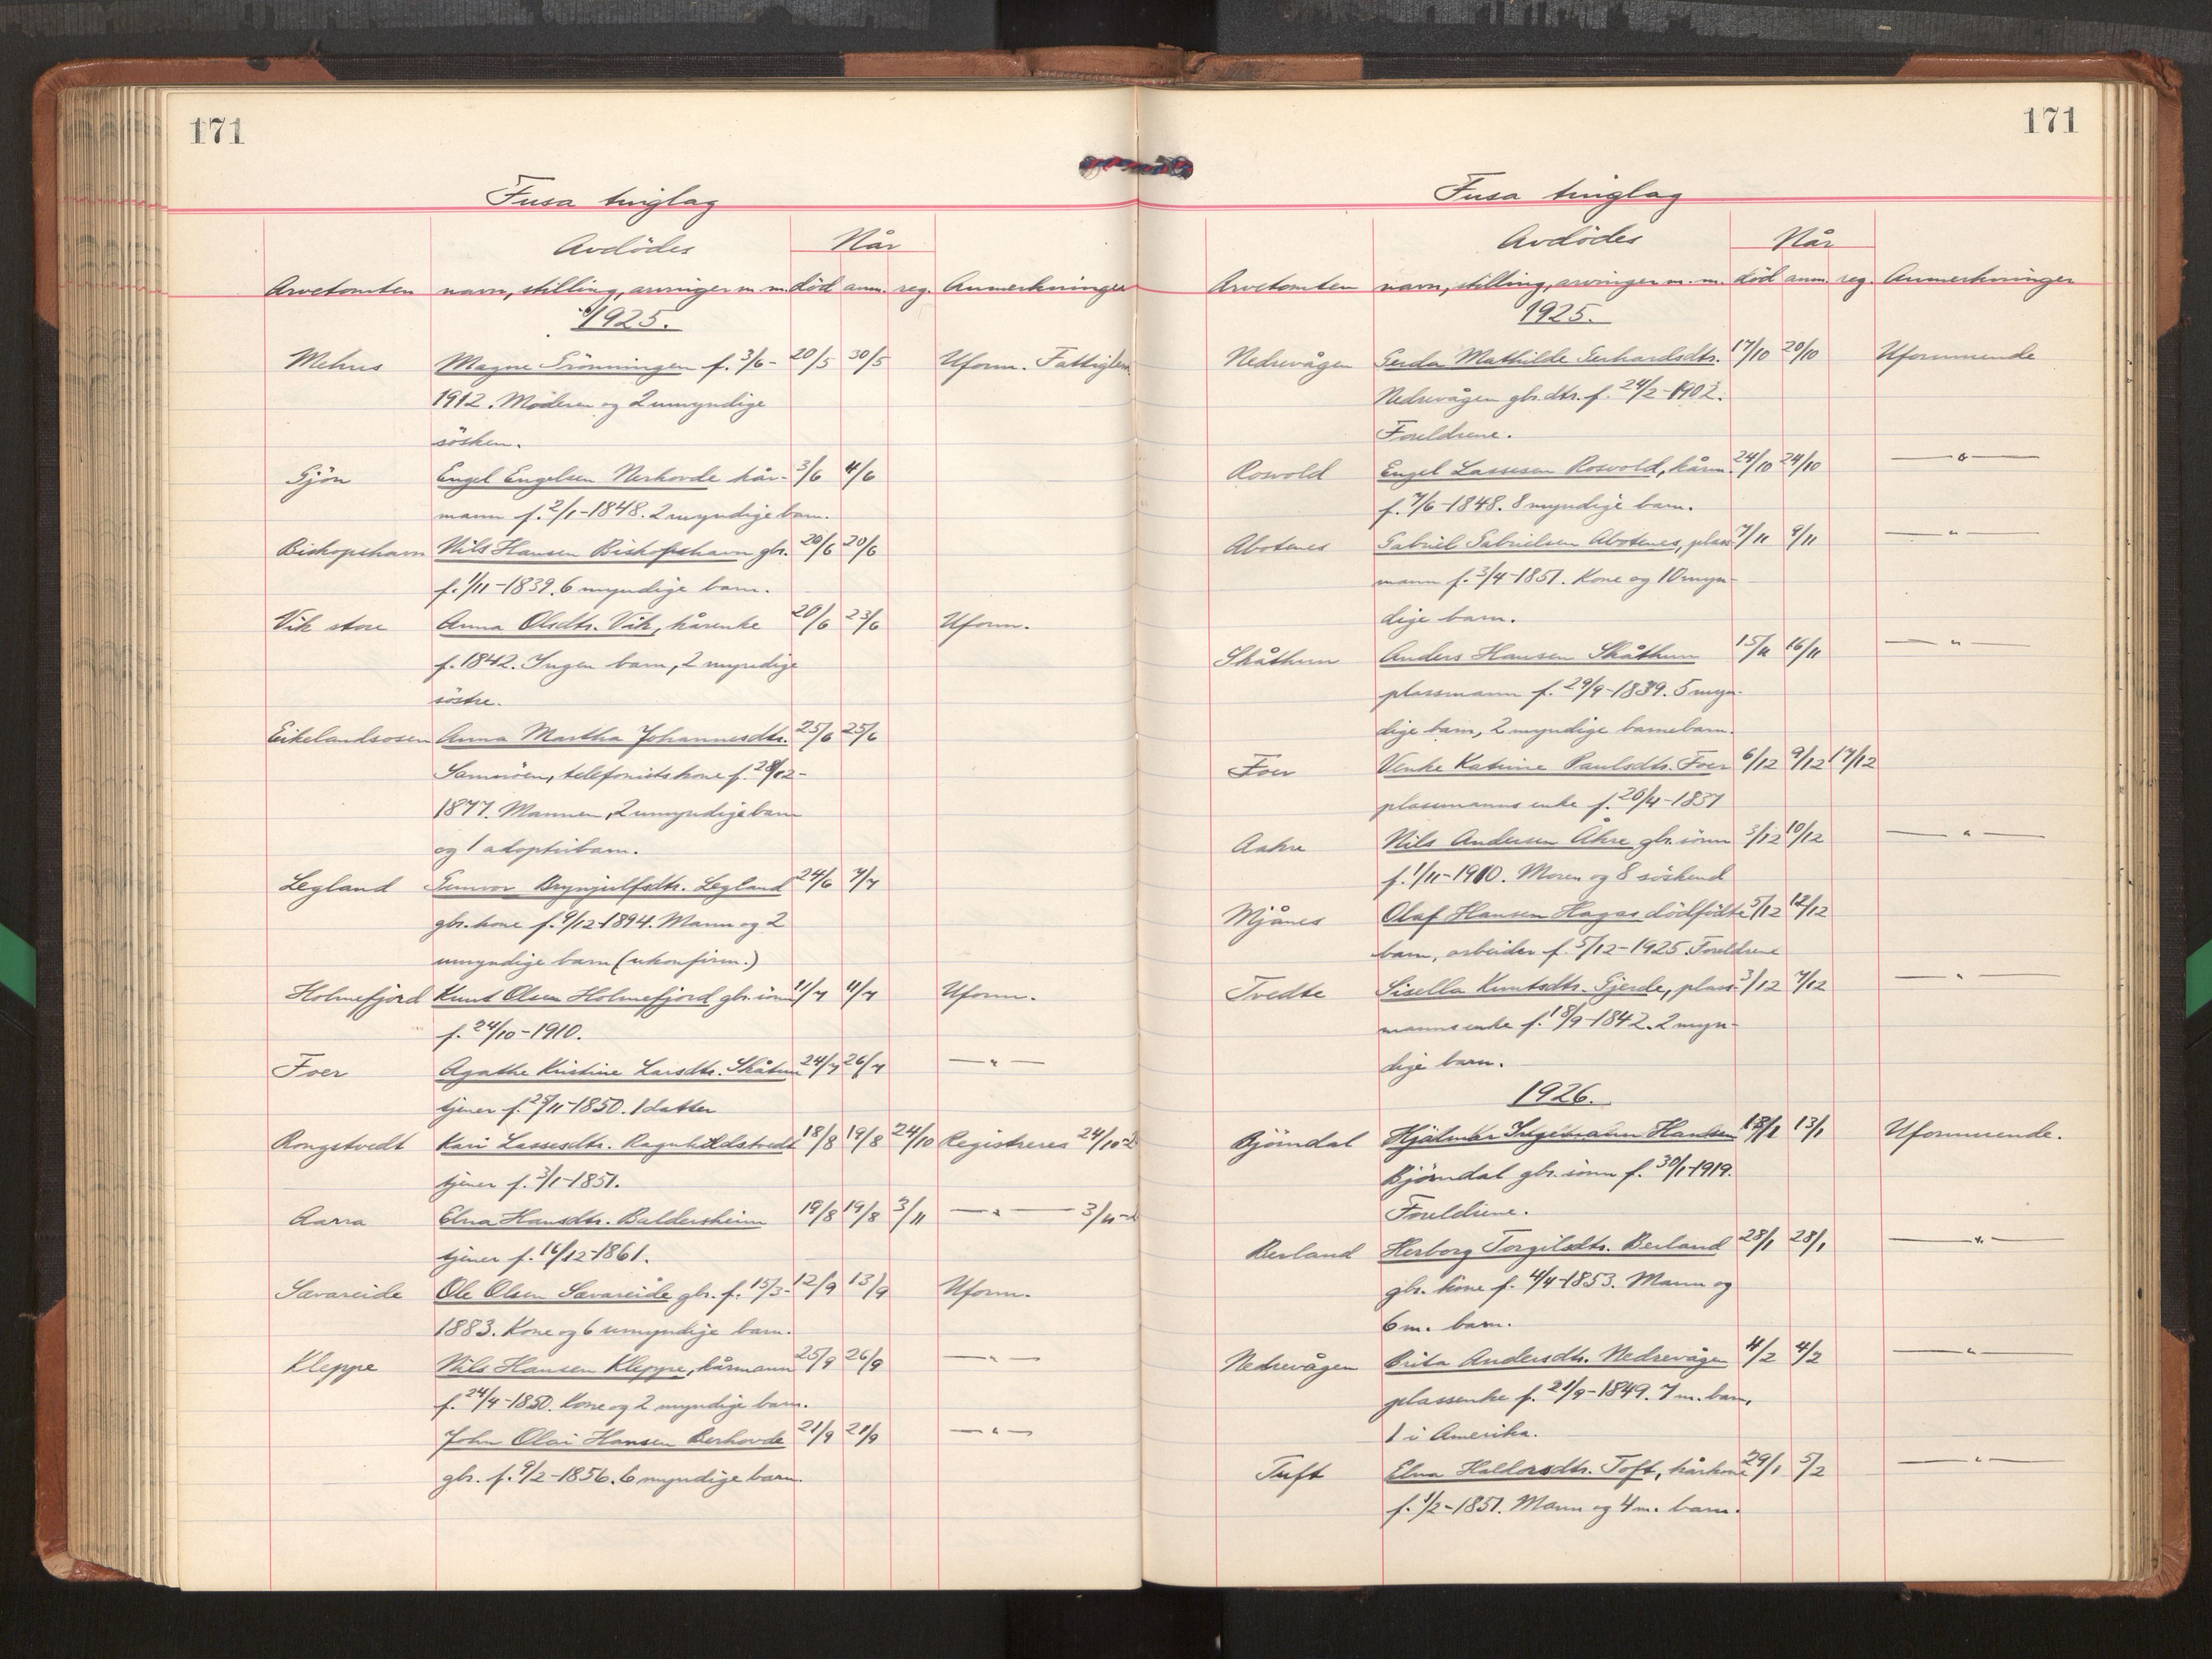 171
Fusa tinglag
Avdödes
Når
Arvetomten navn, stilling, arvinger m.m. död anm. reg. Anmerkninger
1925.
Mehus Magne Grönningen f. 3/6- 20/5 30/5 Uform. Fattiglem.
1912. Moderen og 2 umyndige
søsken.
Gjön Engel Engelsen Nerhovde kår- 3/6 4/6
mann f. 2/1-1848. 2 myndige barn.
Bishopshavn Nils Hansen Bishopshavn gbr. 20/6 20/6
f. 1/11-1839. 6 myndige barn.
Vik store Anna Olsdtr. Vik, kårenke 20/6 23/6 Uform.
f. 1842. Ingen barn, 2 myndige
söstre.
Eikelandsosen Anna Martha Johannesdtr. 25/6 25/6
telefonistkone f. 28/12-
1877. Mannen, 2 umyndige barn
og 1 adoptivbarn.
Legland Gunvor Brynjulfsdtr. Legland 24/6 7/7
gbr. kone f. 9/12-1894. Mann og 2
umyndige barn (ukonfirm.)
Holmefjord Knut Olsen Holmefjord gbr. sönn 11/7 11/7 Uform.
f. 24/10-1910.
Foer Agathe Kristine Larsdtr. Skåtun 24/7 26/7 — " —
tjener f. 25/11-1850. 1 datter
Rongstvedt Kari Lassesdtr. Ragnhildstvedt 18/8 19/8 24/10 Registreres 24/10-2
tjener f. 3/1-1851.
Aarra Elna Hansdtr. Baldersheim 19/8 19/8 3/11 — " — 3/11-2
tjener f. 16/12-1861.
Sævareide Ole Olsen Sævareide gbr. f. 15/3- 12/9 13/9 Uform.
1883. Kone og 6 umyndige barn.
Kleppe Nils Hansen Kleppe, kårmann 25/9 26/9 — " —
f. 24/4-1850. Kone og 2 myndige barn.
John Olai Hansen Berhovde 21/9 21/9 — " —
gbr. f. 9/2-1856. 6 myndige barn.
171
Fusa tinglag
Avdödes
Når
Arvetomten navn, stilling, arvinger m.m. död anm. reg. Anmerkninger
1925.
Nedrevågen Gerda Mathilde Gerhardsdtr. 17/10 20/10 Uformuende
Nedrevågen gbr. dtr. f. 24/2-1902.
Foreldrene.
Rosvold Engel Lassesen Rosvold, kårm. 24/10 24/10 — " —
f. 7/6-1848. 8 myndige barn.
Abotenes Gabriel Gabrielsen Abotenes, plass- 7/11 9/11 — " —
mann f. 3/4-1851. Kone og 10 myn-
dige barn.
Skåthun Anders Hansen Skåthun 15/11 16/11 — " —
plassmann f. 29/9-1839. 5 myn-
dige barn, 2 myndige barnebarn.
Foer Venke Katrine Paulsdtr. Foer 6/12 9/12 17/12
plassmanns enke f. 20/4-1837
Aahre Nils Andersen Åhre gbr. sönn 3/12 10/12 — " —
f. 1/11-1910. Moren og 8 söskend
Mjånes Olaf Hansen Hagas dödfödte 5/12 12/12
barn, arbeider f. 5/12-1925. Foreldrene
Tvedte Sisella Knutsdtr. Gjerde, plass- 3/12 7/12 — " —
mannsenke f. 18/9-1842. 2 myn-
dige barn.
1926.
Björndal Hjalmar Ingebrann Hansen 13/1 13/1 Uformuende.
Björndal gbr. sönn f. 30/1-1919.
Foreldrene.
Berland Herborg Torgilsdtr. Berland 28/1 28/1 — " —
gbr. kone f. 4/4-1853. Mann og
6 m. barn.
Nedrevågen Brita Andersdtr. Nedrevågen 4/2 4/2 — " —
plassenke f. 21/9-1849. 7 m. barn,
1 i Amerika.
Tuft Elna Haldorsdtr. Toft, kårkone 29/1 5/2 — " —
f. 1/2-1851. Mann og 4 m. barn.